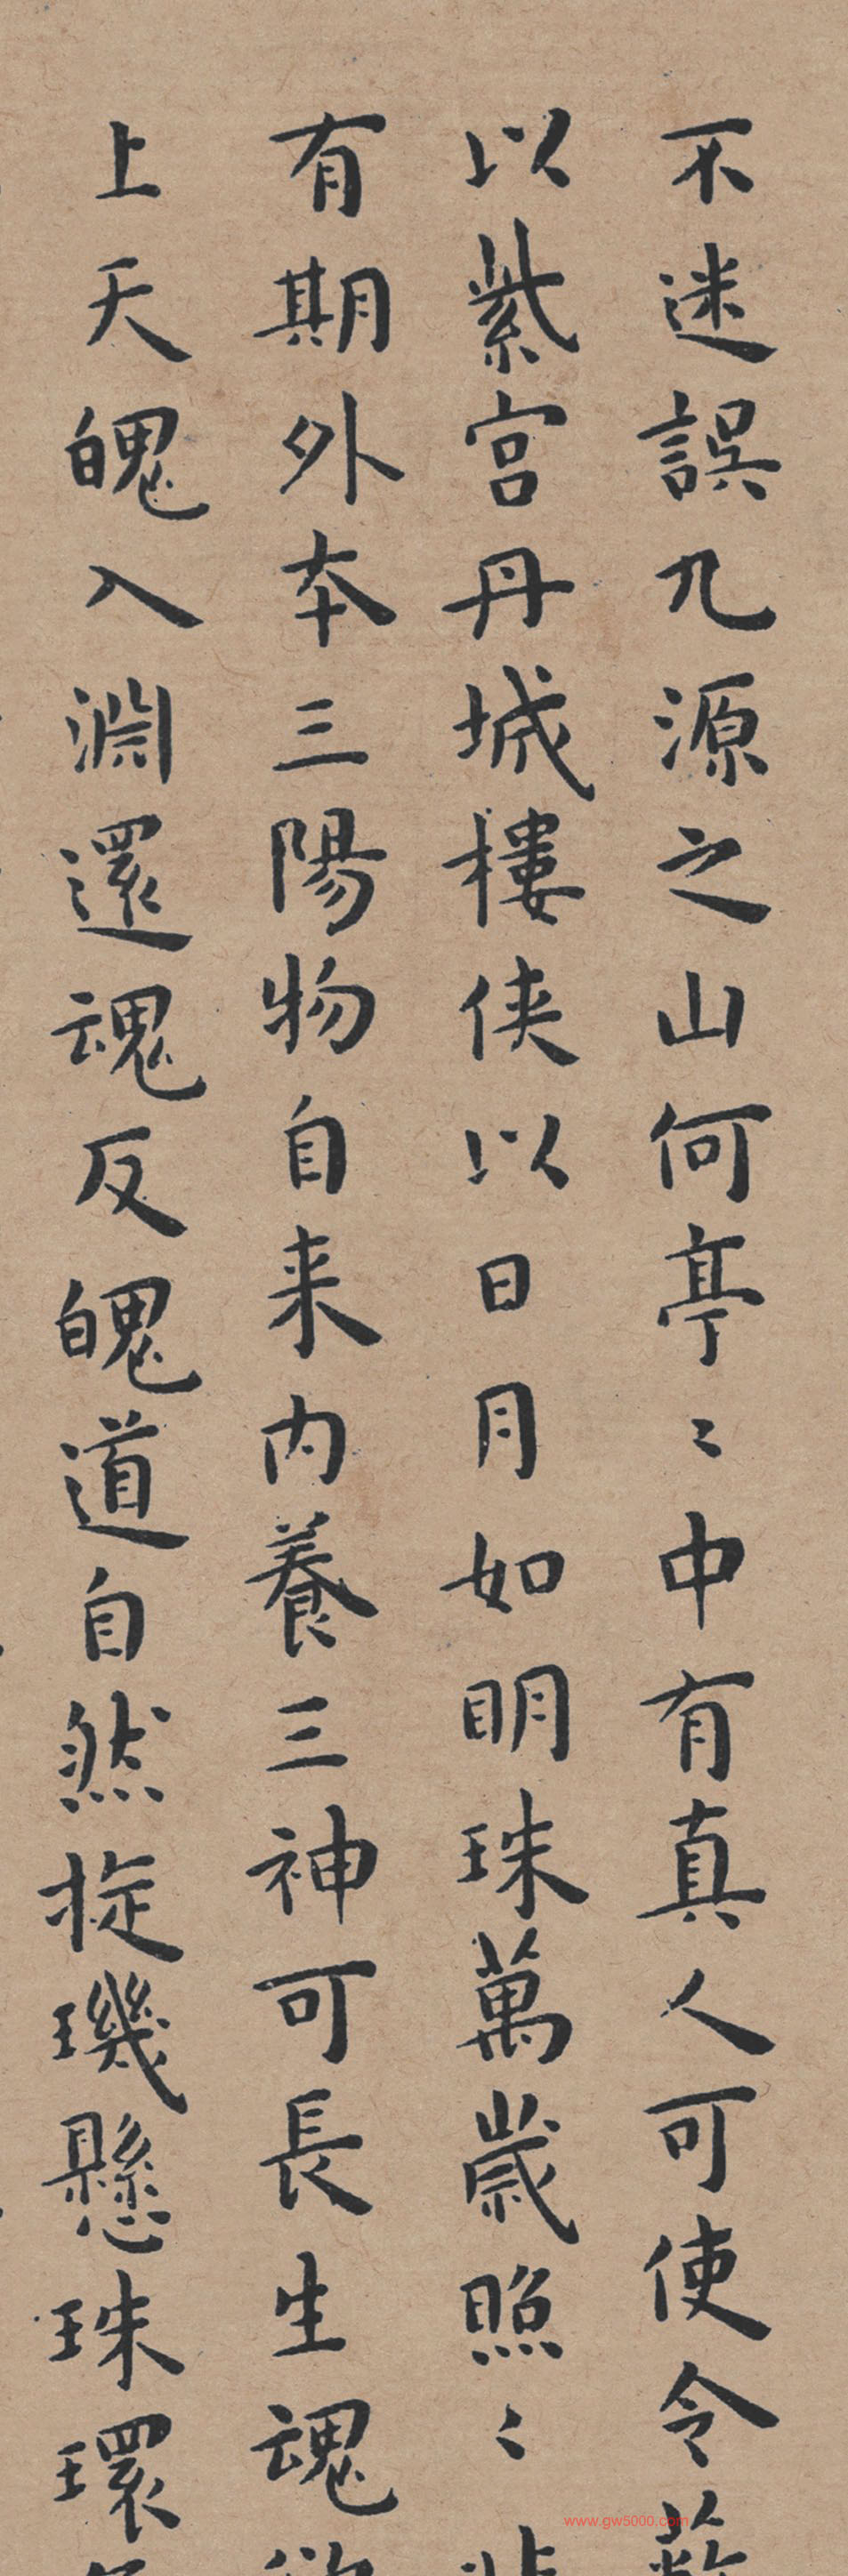 不迷誤九源之山何亭〻中有真人可使令蔽
以紫宫丹城樓侠以日月如明珠萬歲照〻非
有期外本三陽物自来内養三神可長生魂欲
上天魄入淵還魂反魄道自然㧦璣懸珠環
www.gw5000.com